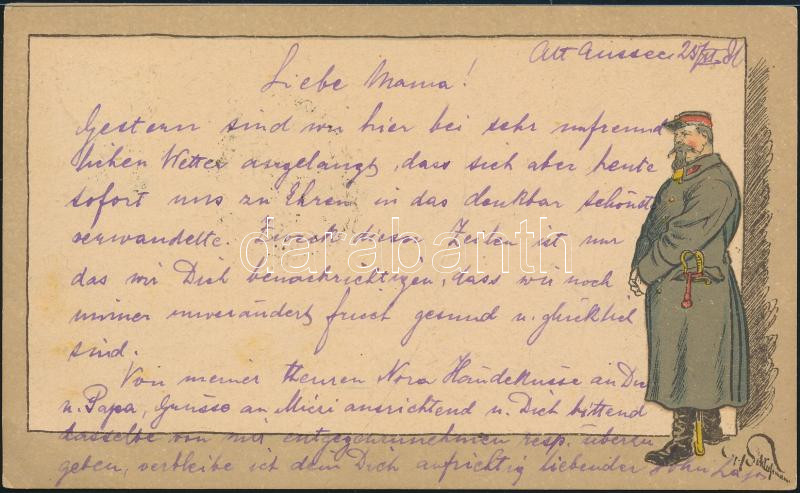 Alt Aussee 25/VI.
Liebe Mama!
Gestern sind wir hier bei sehr unfreund
lichen Wetter angelangt, dass sich aber heute
sofort uns zu Ehren in das denkbar schönste
verwandelte. Zweck dieser Zeilen ist nur
das wir Dich benachrichtigen, dass wir noch
immer unverändert frisch gesund u. glücklich
sind.
Von meiner theuren Nora Handeküsse an Dich
u. Papa, Grüsse an Mici ausrichtend u. Dich bittend
dasselbe von mir entgegenzunehmen resp. überzu
geben, verbleibe ich dein Dich aufrichtig liebender Sohn Lajos
darabanth